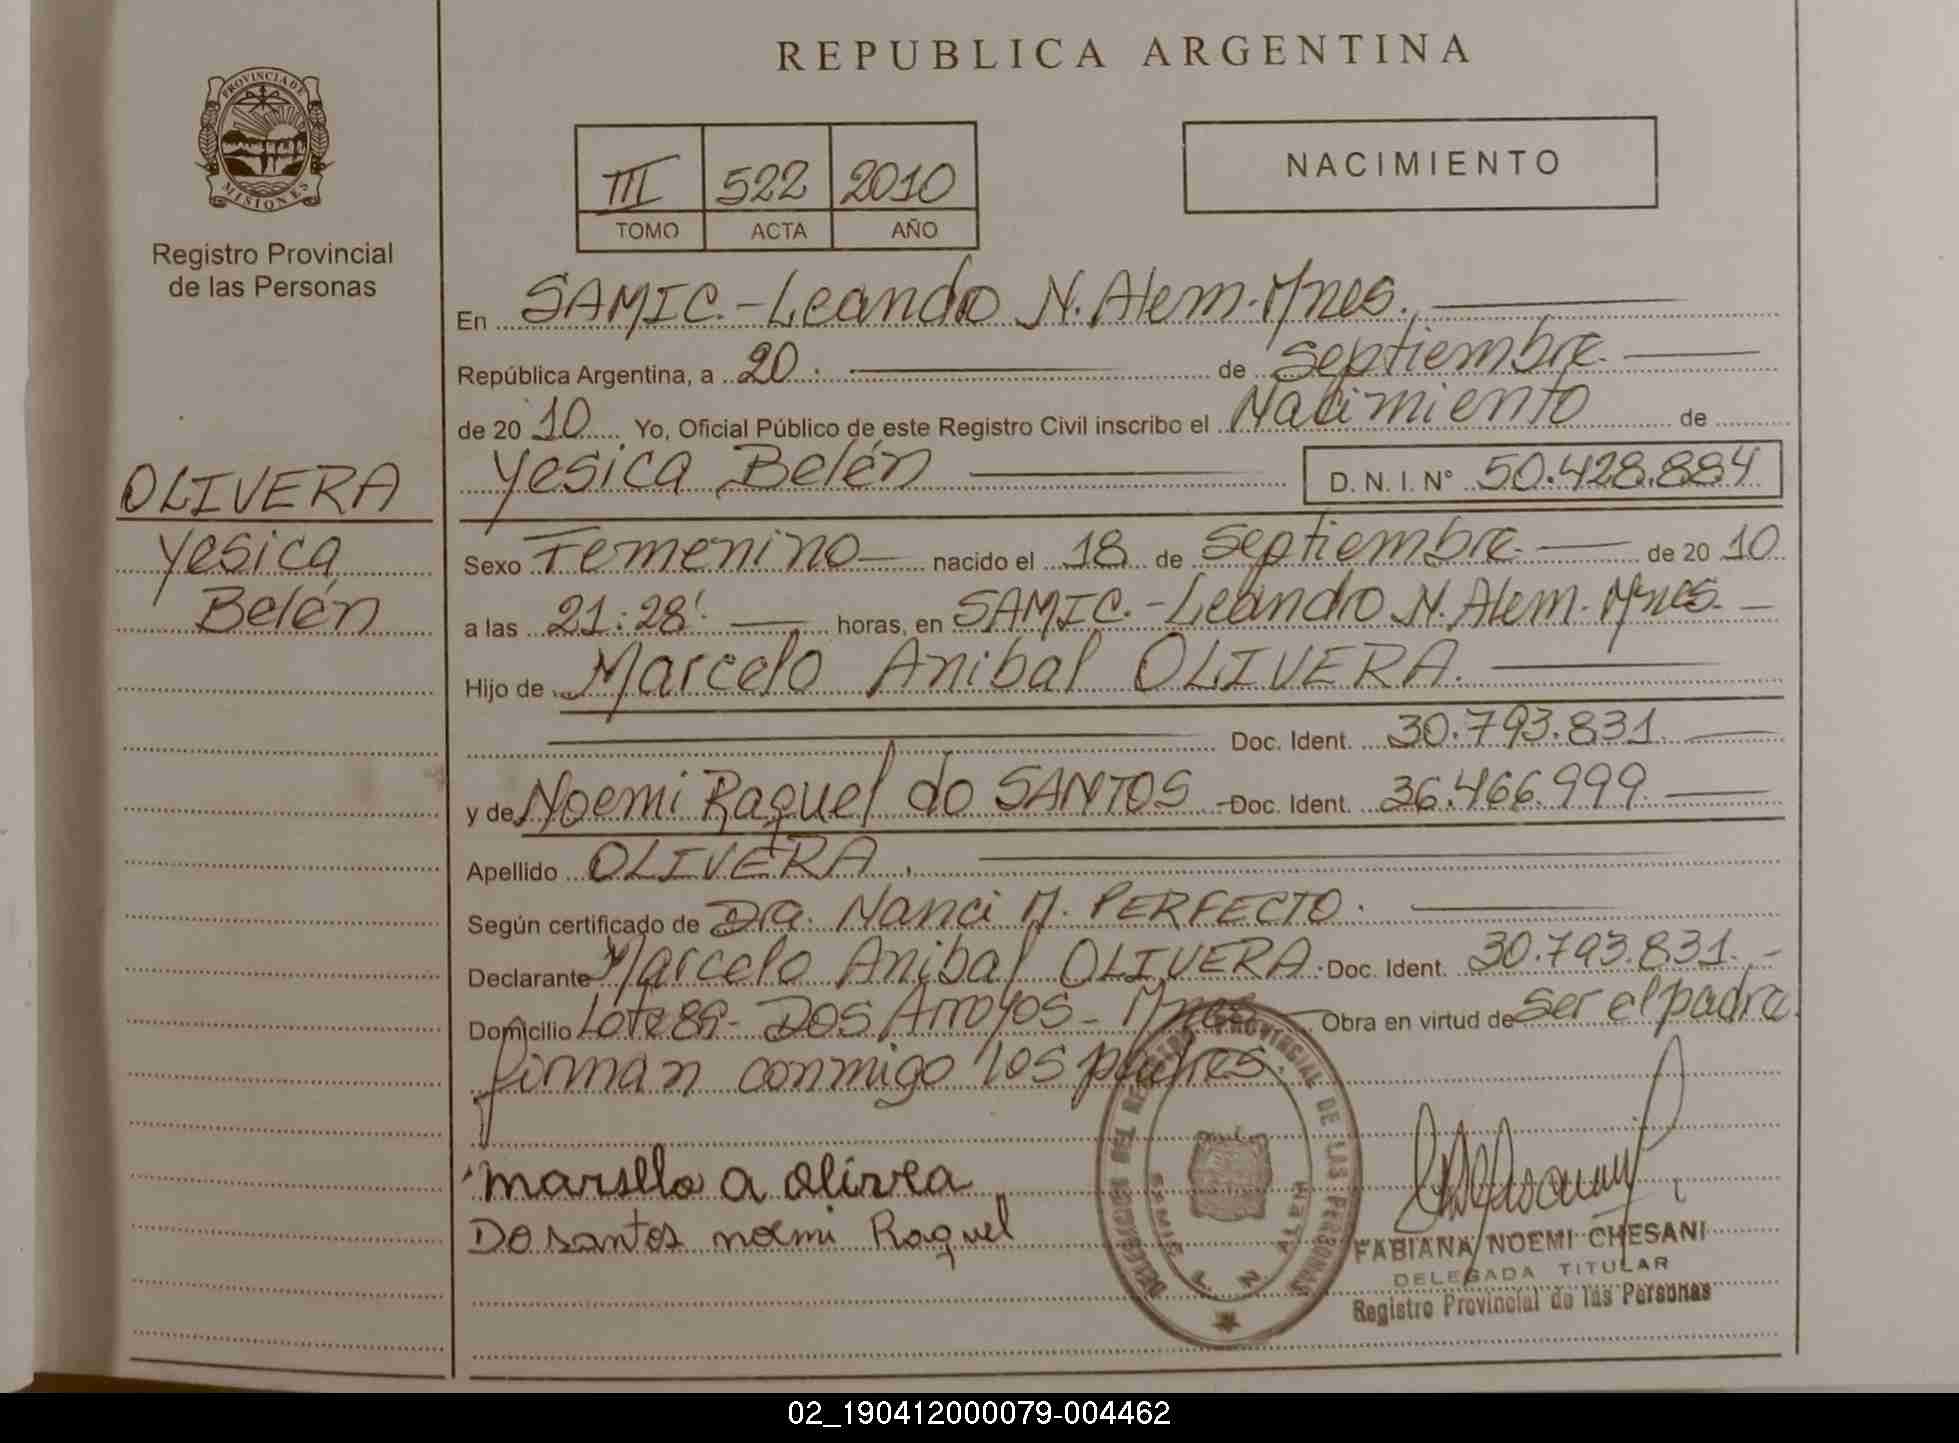 REPUBLICA ARGENTINA
PROVINCIA DE MISIONES
Registro Provincial
de las Personas
III 522 2010
TOMO ACTA AÑO
NACIMIENTO
En SAMIC.-Leandro N. Alem-Mnes.
República Argentina, a 20. de Septiembre.
de 2010 Yo, Oficial Público de este Registro Civil inscribo el Nacimiento de
OLIVERA
Yesica
Belén
Yesica Belén D. N. I. N° 50.428.884
Sexo Femenino nacido el 18 de Septiembre. de 20 10
a las 21:28' horas, en SAMIC.-Leandro N. Alem-Mnes.
Hijo de Marcelo Anibal OLIVERA.
Doc. Ident. 30.793.831.
y de Noemi Raquel do SANTOS Doc. Ident. 36.466.999.
Apellido OLIVERA.
Según certificado de Dra. Nanci M. PERFECTO.
Declarante Marcelo Anibal OLIVERA. Doc. Ident. 30.793.831.-
Domicilio Lote 89- DOS Arroyos- Mnes Obra en virtud de ser el padre.
firman conmigo los padres.
Do santos noemi Raquel
DEL REGISTRO PROVINCIAL DE LAS PERSONAS
SAMIC L. N. ALEM
FABIANA NOEMI CHESANI
DELEGADA TITULAR
Registro Provincial de las Personas
02_190412000079-004462